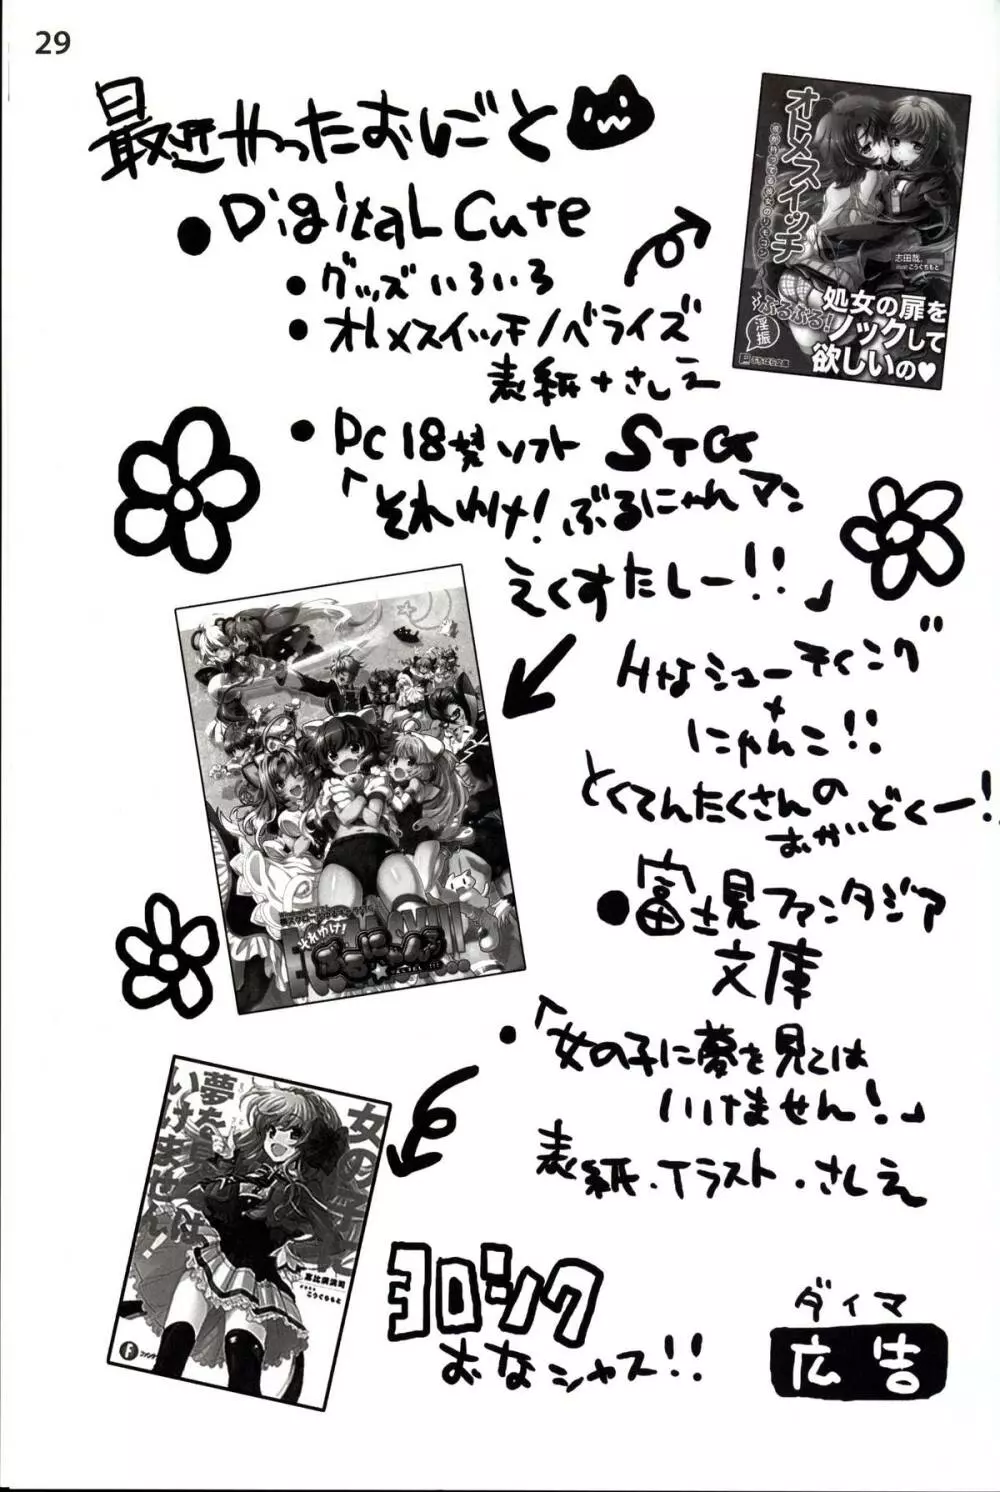 29
最近やったおしごと
・Digital Cute
・グッズいろいろ
・オトメスイッチノベライズ
表紙+さしえ
・PC18禁ソフト STG
「それゆけ!ぶるにゃんマン
えくすたしー!!」
Hなシューティング
+
にゃんこ!!
とくてんたくさんの
おかいどくー!!
・富士見ファンタジア
文庫
・「女の子に夢を見ては
いけません!」
表紙・イラスト・さしえ
ヨロシク
おなシャス!!
ダイマ
広告
オトメスイッチ
俺が持ってる彼女のリモコン
志田哉。
illust こうぐちもと
ぶるぶる!
淫振
処女の扉を
ノックして
欲しいの♥
ぷちぱら文庫
それゆけ!
ぶるにゃんマン
女の子に
夢を見ては
いけません!
恵比須清司
こうぐちもと